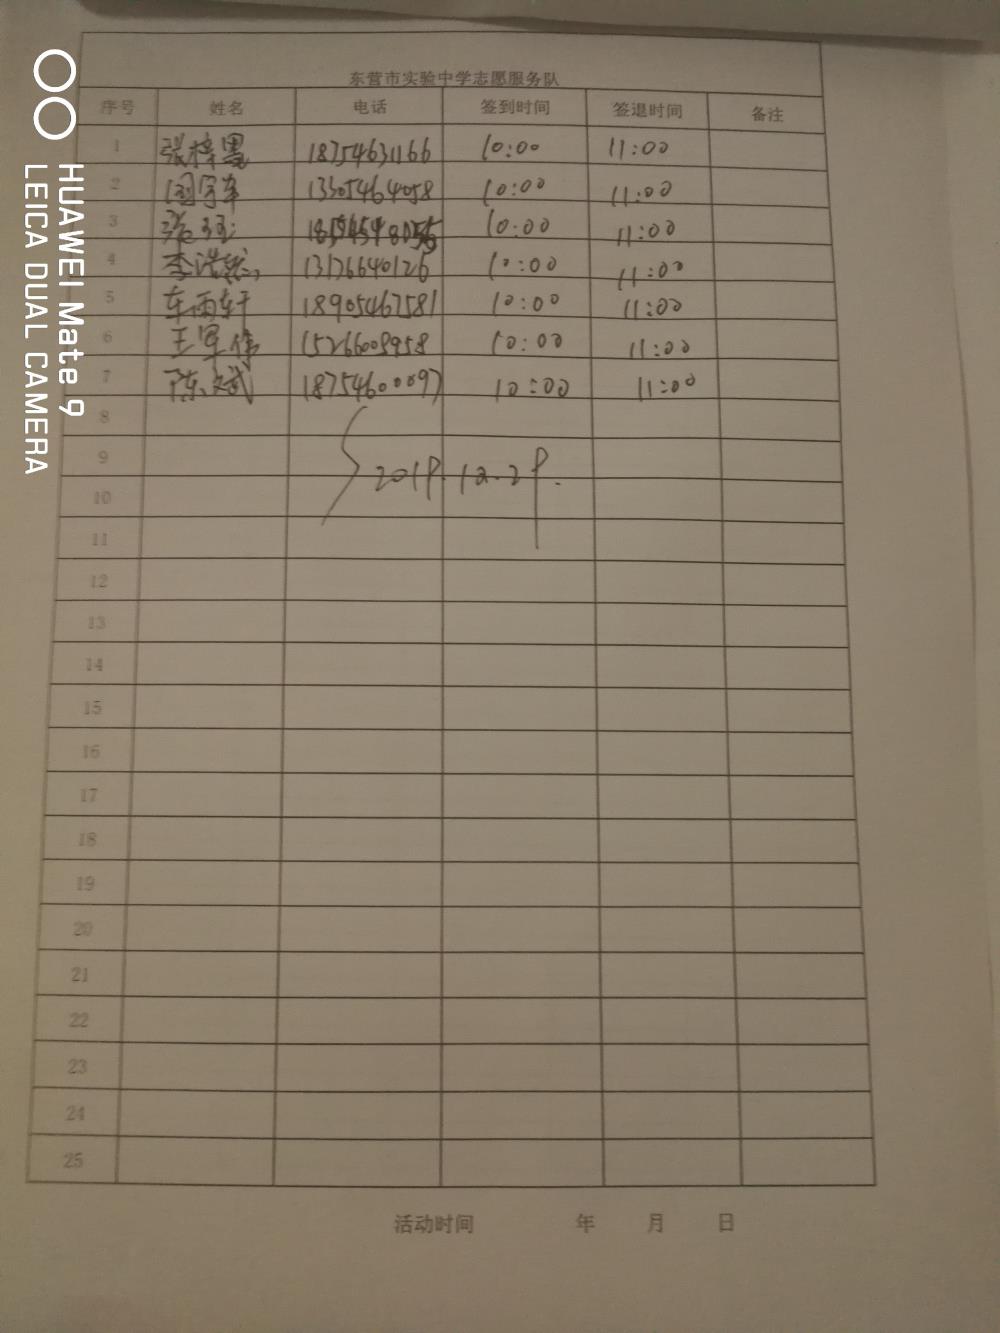 东营市实验中学志愿服务队
序号 姓名 电话 签到时间 签退时间 备注
1 张梓 18754631166 10:00 11:00
2 13305464058 10:00 11:00
3 张 10:00 11:00
4 李浩然 13176640126 10:00 11:00
5 车雨轩 18905467581 10:00 11:00
6 王军伟 15266008958 10:00 11:00
7 陈文斌 18754600097 10:00 11:00
8
9 2019.12.29.
10
11
12
13
14
15
16
17
18
19
20
21
22
23
24
25
活动时间 年 月 日
HUAWEI Mate 9
LEICA DUAL CAMERA